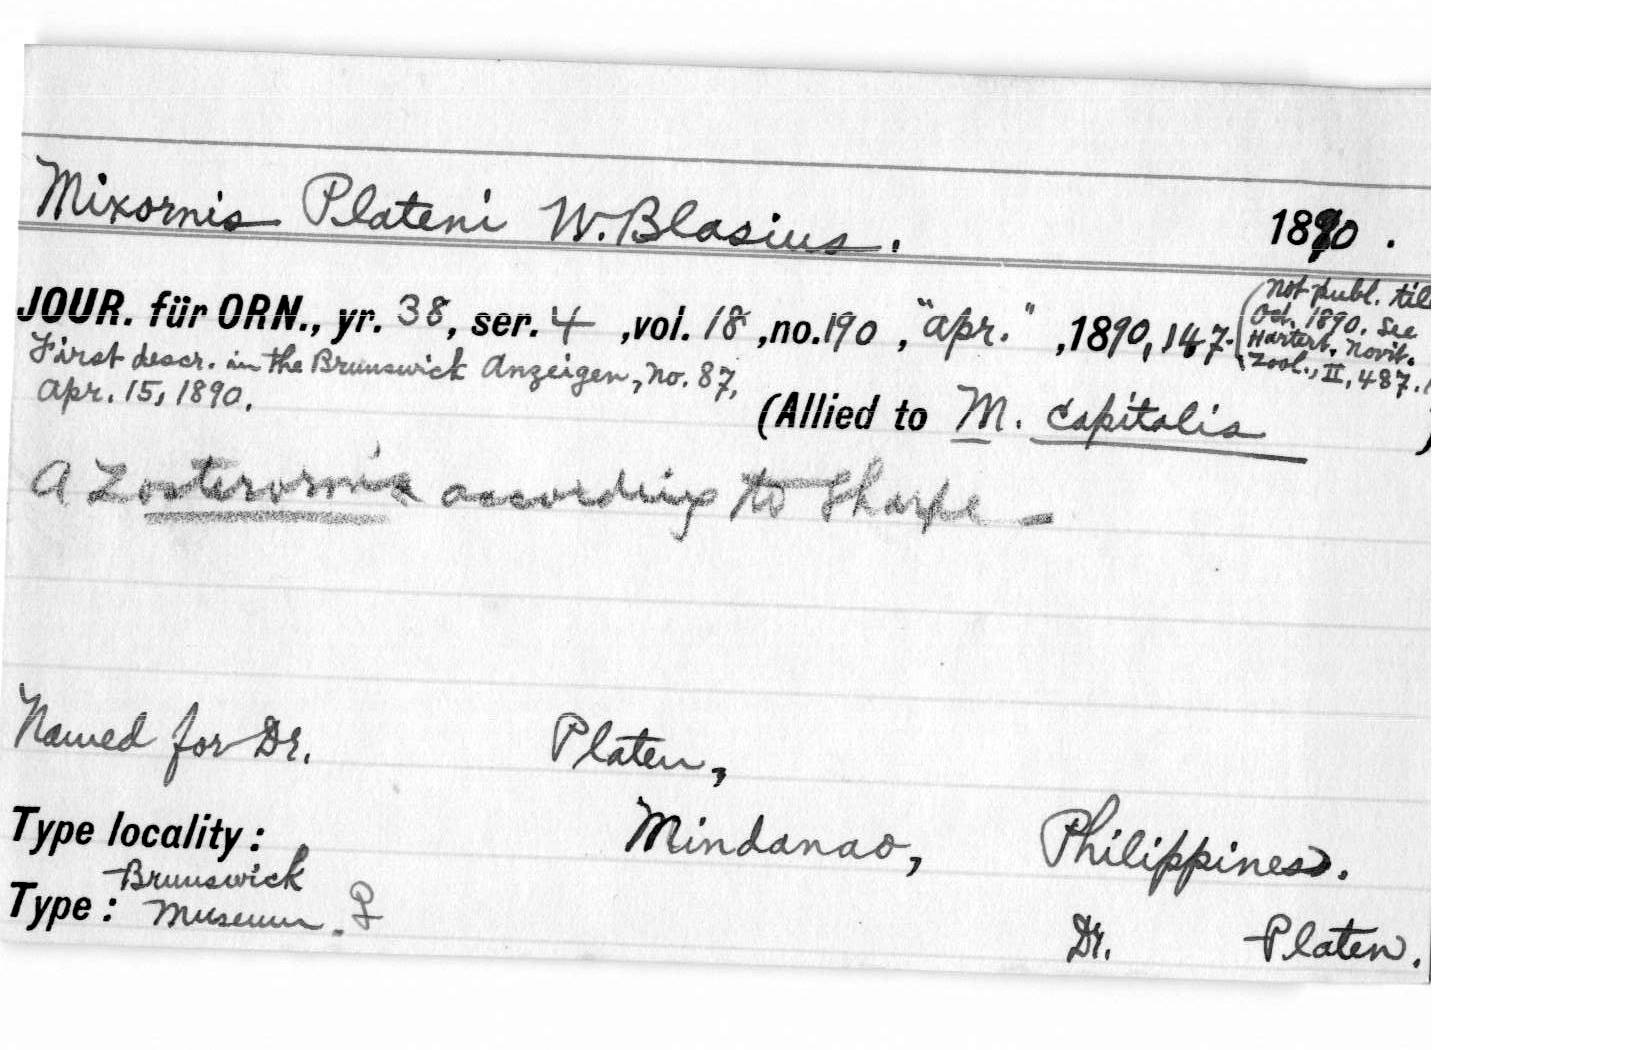 Mixornis Plateni W. Blasius. 1890.
JOUR. für ORN., yr. 38, ser. 4, vol. 18, no. 190, "Apr.", 1890, 147.
(Not publ. til
Oct. 1890. See
Hartert, Novit.
Zool., II, 487.
First descr. in the Brunswick Anzeigen, No. 87,
Apr. 15, 1890.
(Allied to M. capitalis )
A Zosterornis according to Sharpe –
Named for Dr. Platen,
Type locality: Mindanao, Philippines.
Brunswick
Type: Museum. ♀
Dr. Platen.